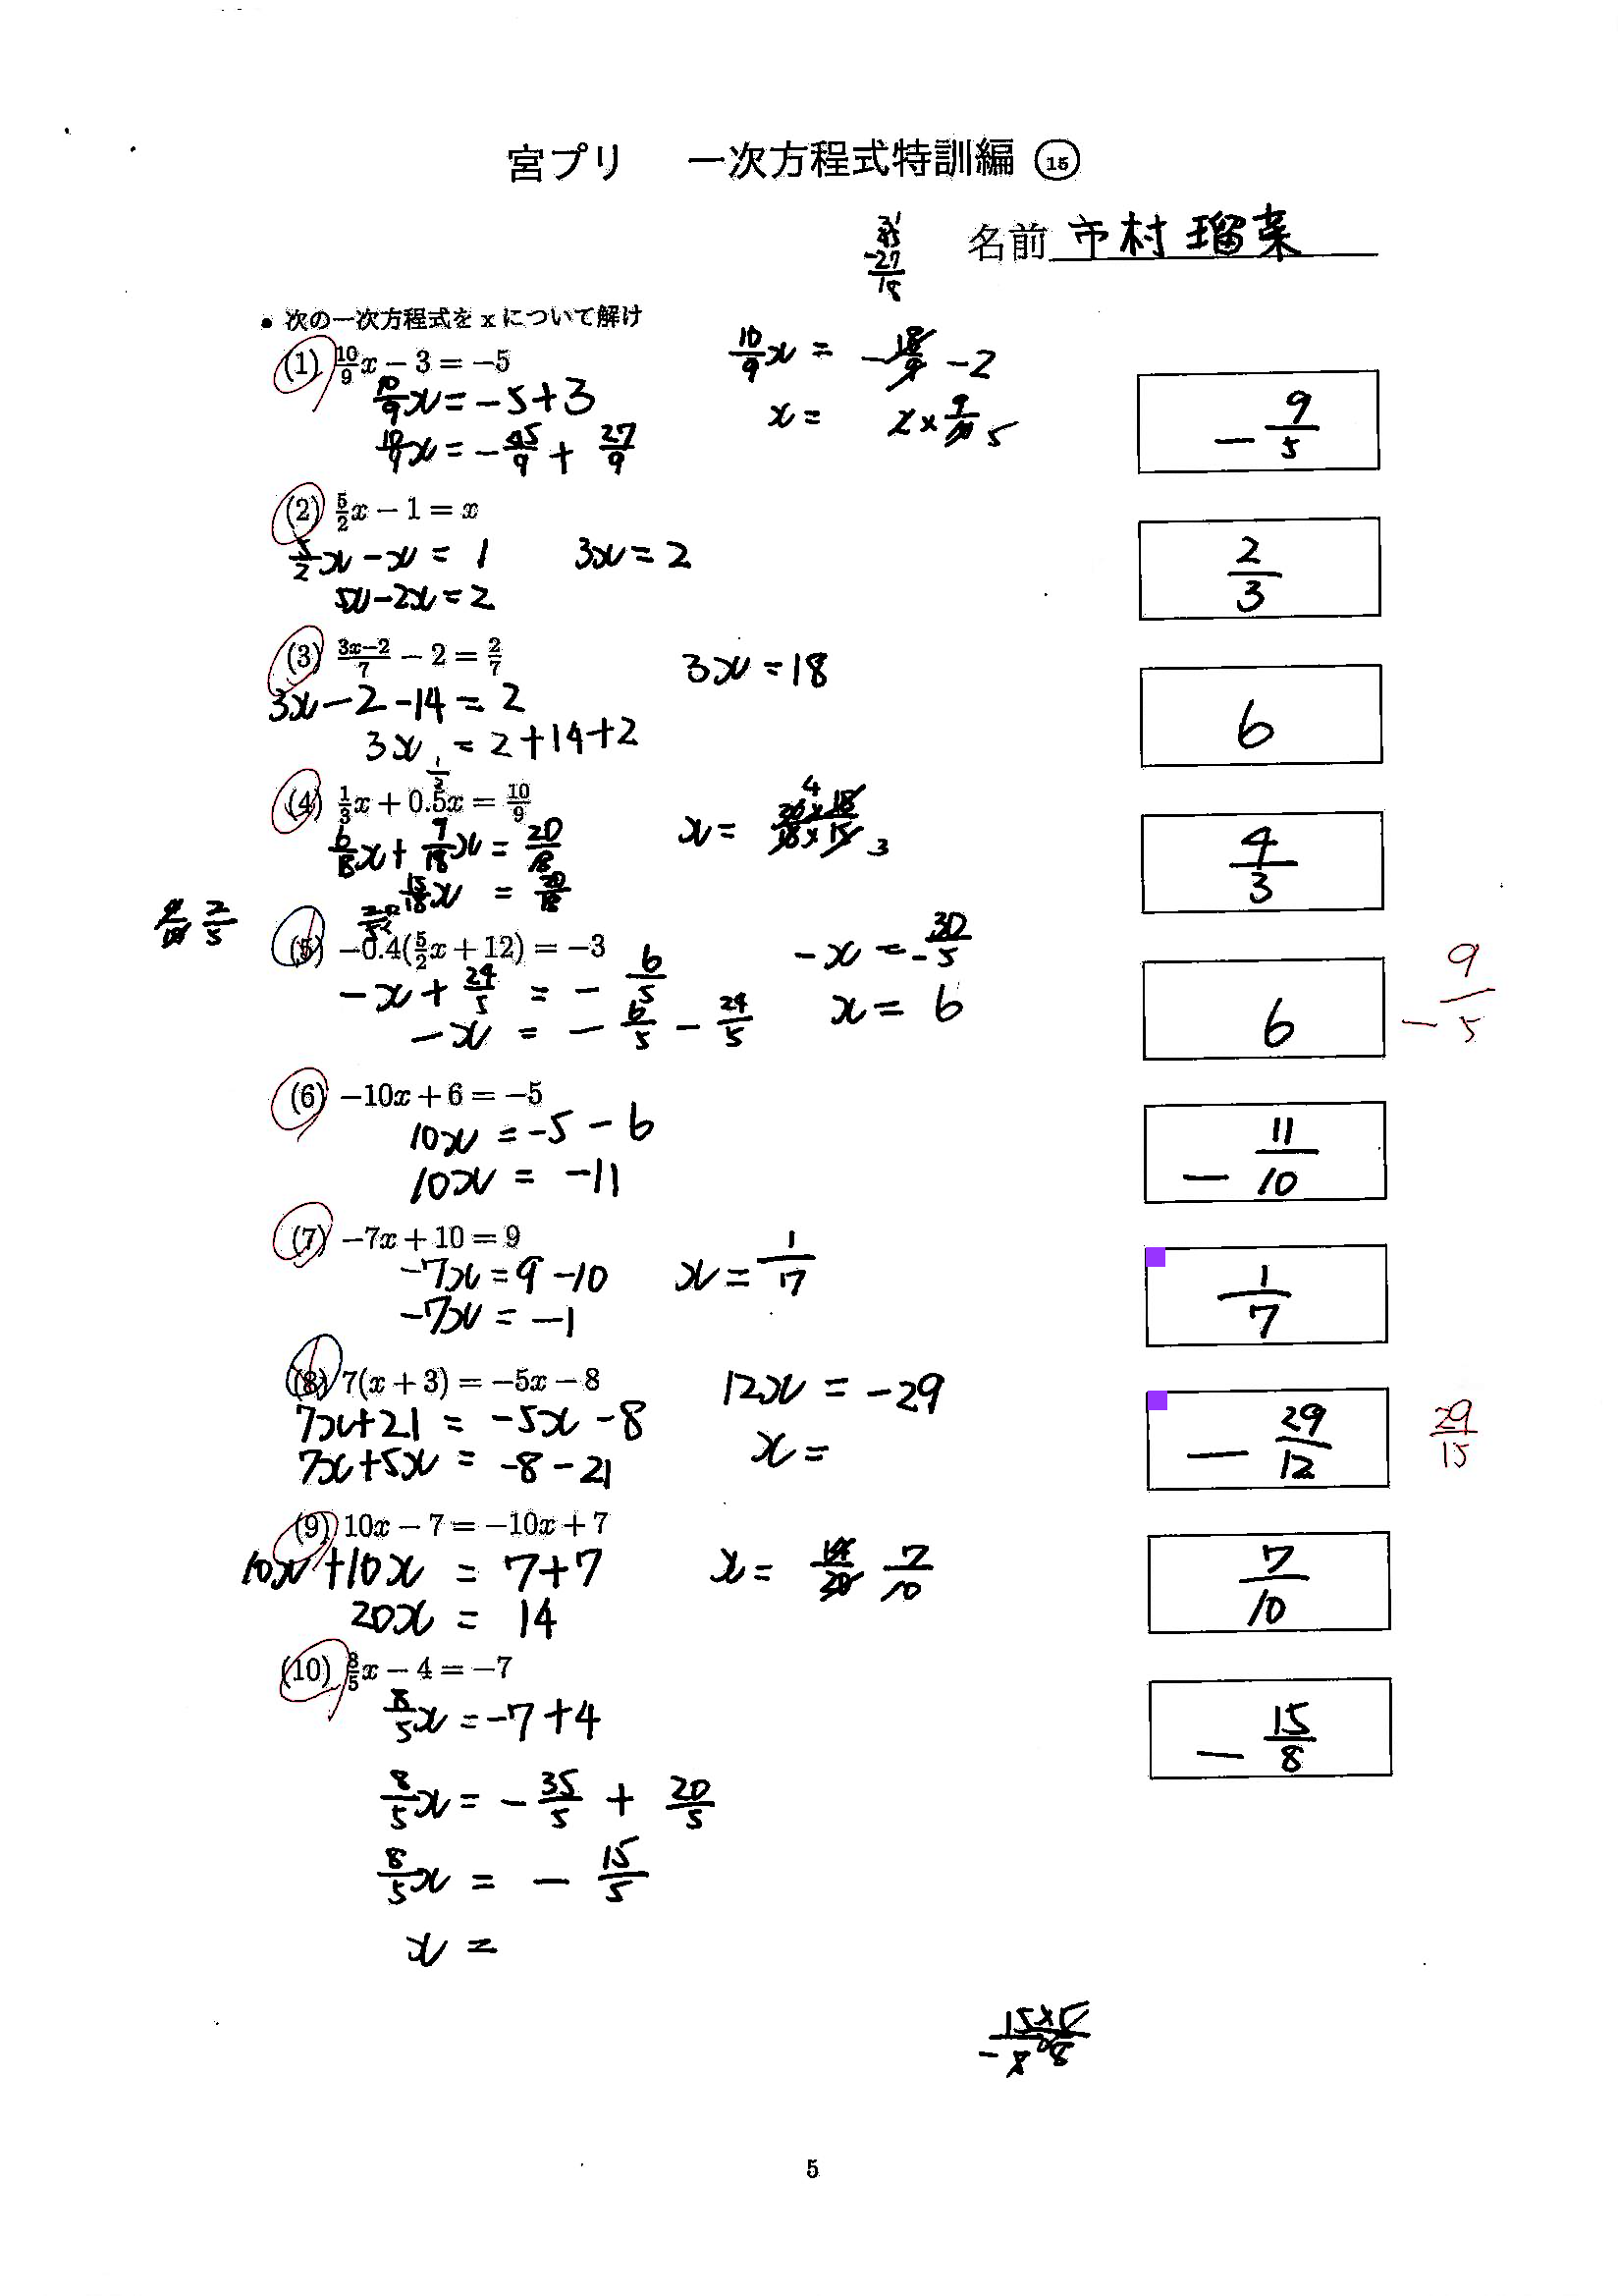 宮プリ 一次方程式特訓編 ⑮
名前 市村 瑠菜
45
-27
18
• 次の一次方程式を x について解け
(1) 10/9 x − 3 = −5
10/9 x = −5+3
10/9 x = −45/9 + 27/9
10/9 x = −18/9 −2
x = 2 × 9/10 5
−9/5
(2) 5/2 x − 1 = x
5/2 x − x = 1
5x − 2x = 2
3x = 2
2/3
(3) (3x−2)/7 − 2 = 2/7
3x − 2 − 14 = 2
3x = 2+14+2
3x = 18
6
(4) 1/3 x + 0.5x = 10/9
1/2
6/18 x + 9/18 x = 20/18
15/18 x = 20/18
x = 4 20×18/18×15 3
4/3
2/5
(5) −0.4(5/2 x + 12) = −3
−x + 24/5 = −6/5
−x = −6/5 − 24/5
−x = −30/5
x = 6
6
−9/5
(6) −10x + 6 = −5
10x = −5 − 6
10x = −11
−11/10
(7) −7x + 10 = 9
−7x = 9 − 10
−7x = −1
x = 1/17
1/7
(8) 7(x + 3) = −5x − 8
7x+21 = −5x − 8
7x+5x = −8 − 21
12x = −29
x =
−29/12
29/15
(9) 10x − 7 = −10x + 7
10x + 10x = 7+7
20x = 14
x = 14/20 7/10
7/10
(10) 8/5 x − 4 = −7
8/5 x = −7+4
8/5 x = −35/5 + 20/5
8/5 x = −15/5
x =
−15/8
5